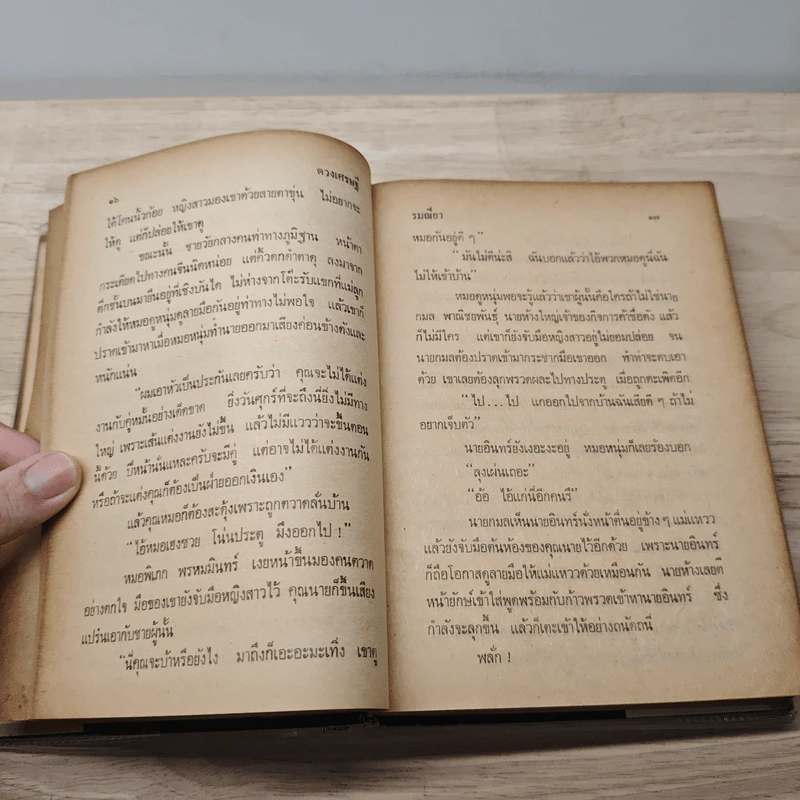 ๑๖
ดวงเศรษฐี
ใต้โคนนิ้วก้อย หญิงสาวมองเขาด้วยสายตาขุ่น ไม่อยากจะ
ให้ดู แต่ก็ปล่อยให้เขาดู
ขณะนั้น ชายวัยกลางคนท่าทางภูมิฐาน หน้าตา
กระเดียดไปทางคนจีนนิดหน่อย แต่คิ้วดกดำตาดุ ลงมาจาก
ตึกชั้นบนมายืนอยู่ที่เชิงบันได ไม่ห่างจากโต๊ะรับแขกที่แม่ลูก
กำลังให้หมอดูหนุ่มดูลายมือกันอยู่ท่าทางไม่พอใจ แล้วเขาก็
ปราดเข้ามาหาเมื่อหมอหนุ่มทำนายออกมาเสียงค่อนข้างดังและ
หนักแน่น
“ผมเอาหัวเป็นประกันเลยครับว่า คุณจะไม่ได้แต่ง
งานกับคู่หมั้นอย่างเด็ดขาด ยิ่งวันศุกร์ที่จะถึงนี่ยิ่งไม่มีทาง
ใหญ่ เพราะเส้นแต่งงานยังไม่ขึ้น แล้วไม่มีแววว่าจะขึ้นตอน
นี้ด้วย ปีหน้านั่นแหละครับจะมีคู่ แต่อาจไม่ได้แต่งงานกัน
หรือถ้าจะแต่งคุณก็ต้องเป็นฝ่ายออกเงินเอง”
แล้วคุณหมอก็ต้องสะดุ้งเพราะถูกตวาดลั่นบ้าน
“ไอ้หมอเฮงซวย โน่นประตู มึงออกไป !”
หมอพิเภก พรหมมินทร์ เงยหน้าขึ้นมองคนตวาด
อย่างตกใจ มือของเขายังจับมือหญิงสาวไว้ คุณนายก็ขึ้นเสียง
แปร๋นเอากับชายผู้นั้น
“นี่คุณจะบ้าหรือยังไง มาถึงก็เอะอะมะเทิ่ง เขาดู
รมณียา
๑๗
หมอกันอยู่ดี ๆ”
“มันไม่ดีน่ะสิ ฉันบอกแล้วว่าไอ้พวกหมอดูนี่ฉัน
ไม่ให้เข้าบ้าน”
หมอดูหนุ่มพอจะรู้แล้วว่าเขาผู้นั้นคือใครถ้าไม่ใช่นาย
กมล พาณิชยพันธุ์ นายห้างใหญ่เจ้าของกิจการค้าชื่อดัง แล้ว
ก็ไม่มีใคร แต่เขาก็ยังจับมือหญิงสาวอยู่ไม่ยอมปล่อย จน
นายกมลต้องปราดเข้ามากระชากมือเขาออก ทำท่าจะตบเอา
ด้วย เขาเลยต้องลุกพรวดผละไปทางประตู เมื่อถูกตะเพิดอีก
“ไป...ไป แกออกไปจากบ้านฉันเสียดี ๆ ถ้าไม่
อยากเจ็บตัว”
นายอินทร์ยังเงอะงะอยู่ หมอหนุ่มก็เลยร้องบอก
“ลุงเผ่นเถอะ”
“อ้อ ไอ้แก่นี่อีกคนรึ”
นายกมลเห็นนายอินทร์นั่งหน้าตื่นอยู่ข้าง ๆ แม่แหวว
แล้วยังจับมือต้นห้องของคุณนายไว้อีกด้วย เพราะนายอินทร์
ก็ถือโอกาสดูลายมือให้แม่แหววด้วยเหมือนกัน นายห้างเลยตี
หน้ายักษ์เข้าใส่พูดพร้อมกับก้าวพรวดเข้าหานายอินทร์ ซึ่ง
กำลังจะลุกขึ้น แล้วก็เตะเข้าให้อย่างถนัดถนี่
พลั่ก !